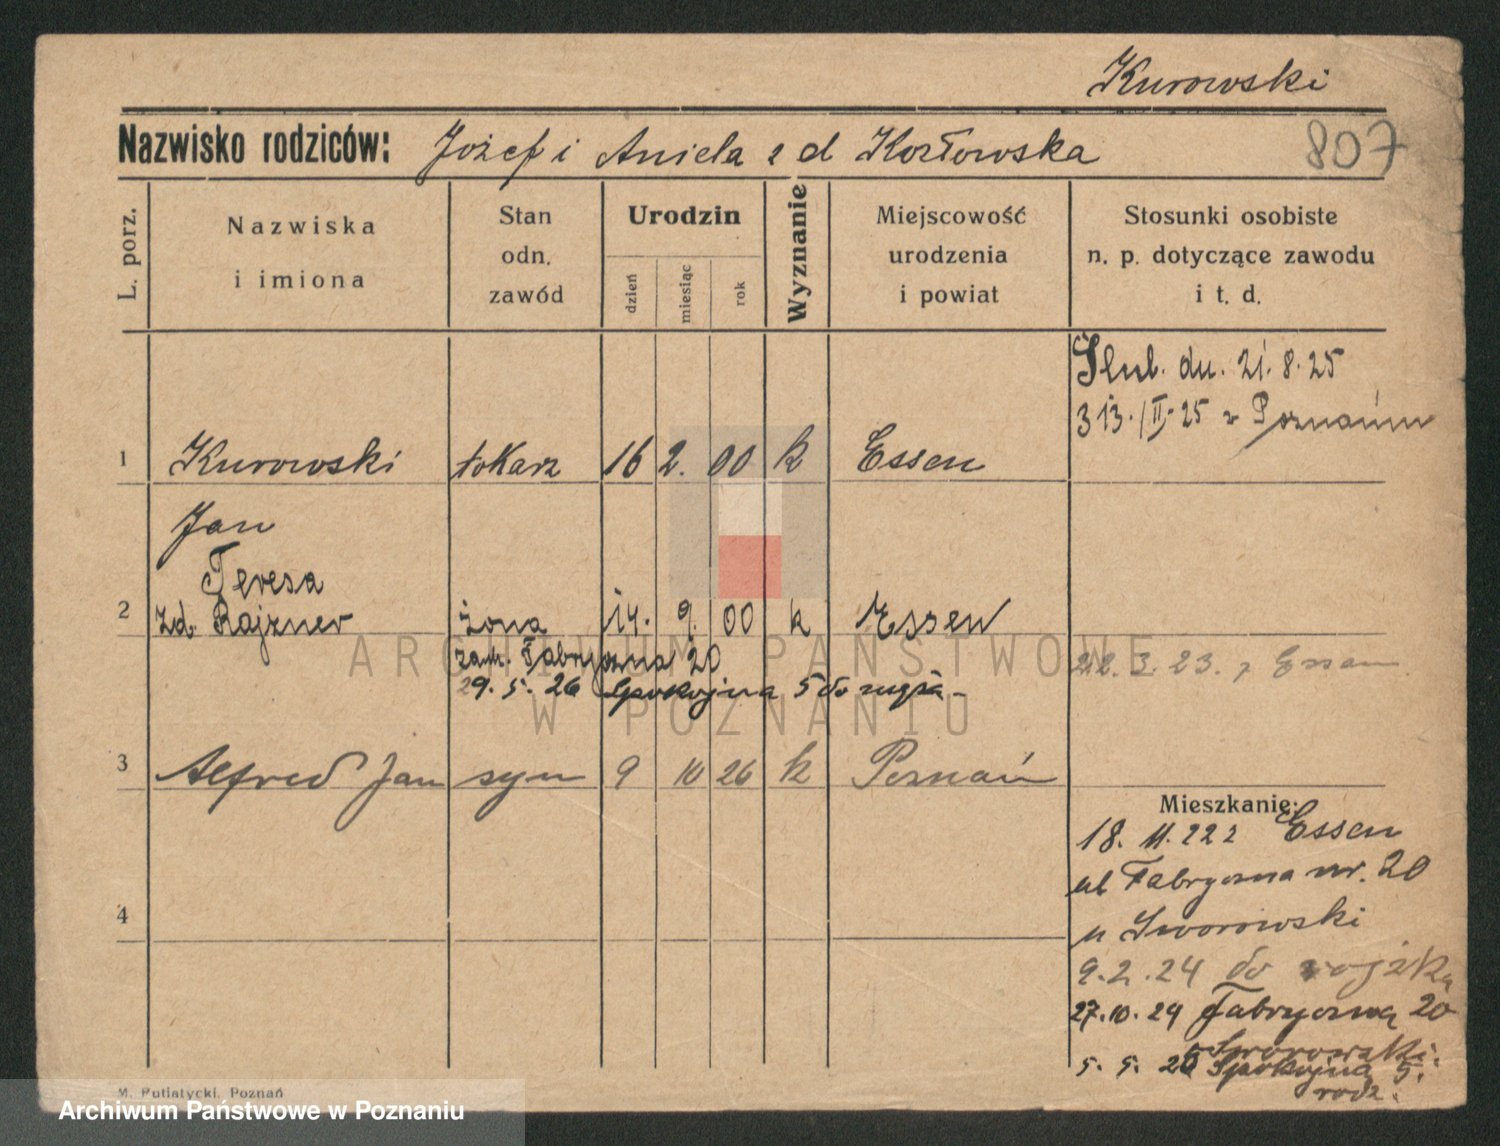 Kurowski
Nazwisko rodziców: Józef i Aniela z d Kozłowska 807
L. porz.
Nazwiska
i imiona
Stan
odn.
zawód
Urodzin
dzień
miesiąc
rok
Wyznanie
Miejscowość
urodzenia
i powiat
Stosunki osobiste
n. p. dotyczące zawodu
i t. d.
Ślub. dn. 21. 8. 25
313./II. 25 w Poznaniu
1 Kurowski tokarz 16 2. 00 k Essen
Jan
Teresa
2 zd. Rajzner żona 14. 9. 00 k Essen
zam. Fabryczna 20
22. 3. 23. z Essen
29. 5. 26 Spokojna 5 do męża -
3 Alfred Jan syn 9 10 26 k Poznań
Mieszkanie:
18. 11. 22 z Essen
ul Fabryczna nr. 20
4
u Sworowski
9. 2. 24 do wojska
27. 10. 24 Fabryczna 20
Sworowski.
5. 5. 26 Spokojna 5.
rodz.
M. Putiatycki, Poznań
ARCHIWUM PAŃSTWOWE
W POZNANIU
Archiwum Państwowe w Poznaniu